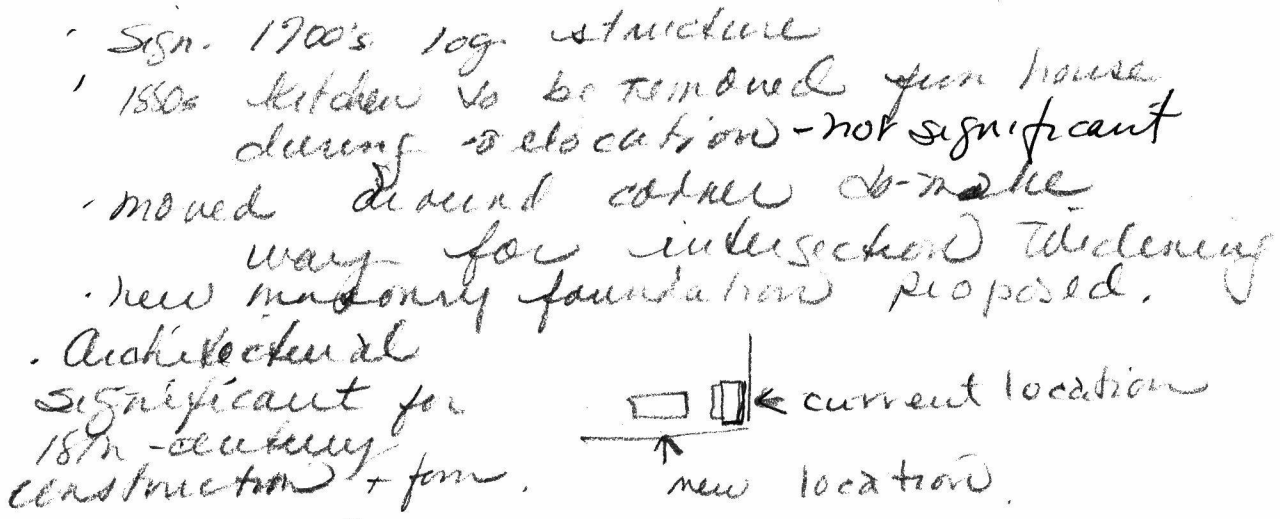 · Sign. 1700's log structure
· 1880s kitchen to be removed from house
during relocation - not significant
· moved around corner to make
way for intersection widening
· new masonry foundation proposed.
· Architectural
significant for
18th-century
construction + form.
← current location
↑
new location.